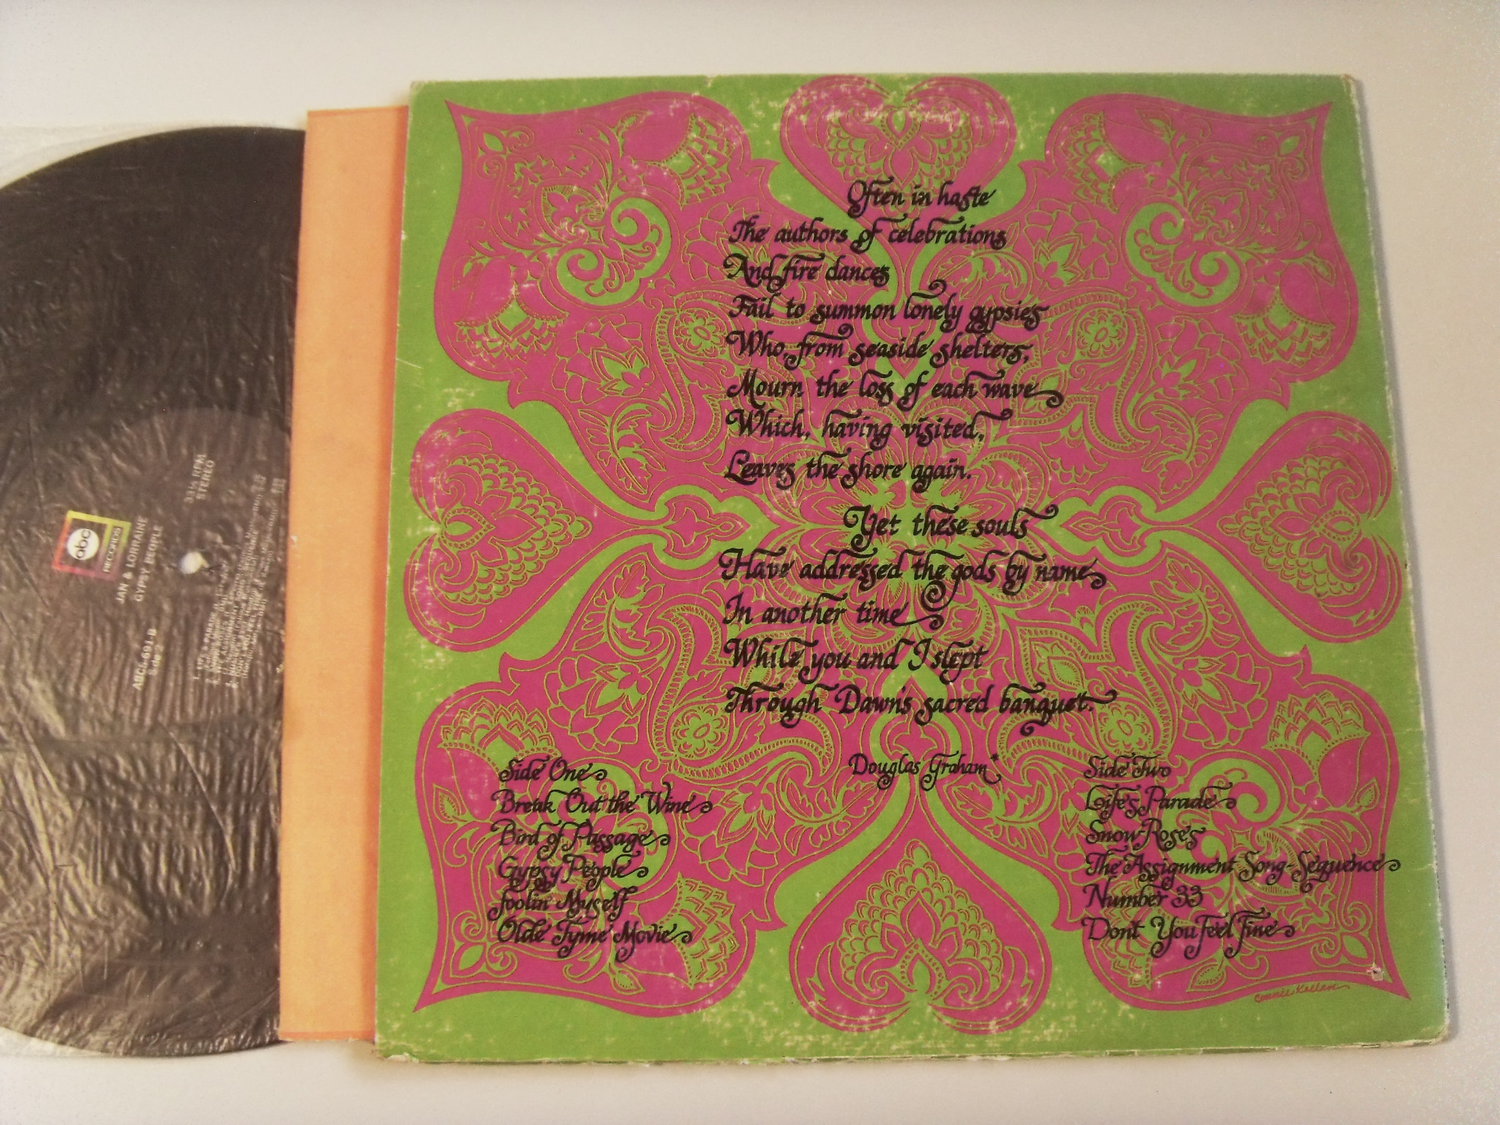 Often in haste
The authors of celebrations
And fire dances
Fail to summon lonely gypsies
Who, from seaside shelters,
Mourn the loss of each wave
Which, having visited,
Leaves the shore again.
Yet these souls
Have addressed the gods by name
In another time
While you and I slept
Through Dawn's sacred banquet.
Douglas Graham
Side One
Break Out the Wine
Bird of Passage
Gypsy People
Foolin' Myself
Olde Tyme Movie
Side Two
Life's Parade
Snow Roses
The Assignment Song-Sequence
Number 33
Don't You Feel Fine
abc
RECORDS
JAN & LORRAINE
GYPSY PEOPLE
33⅓ RPM
STEREO
ABCS-691-B
Side 2